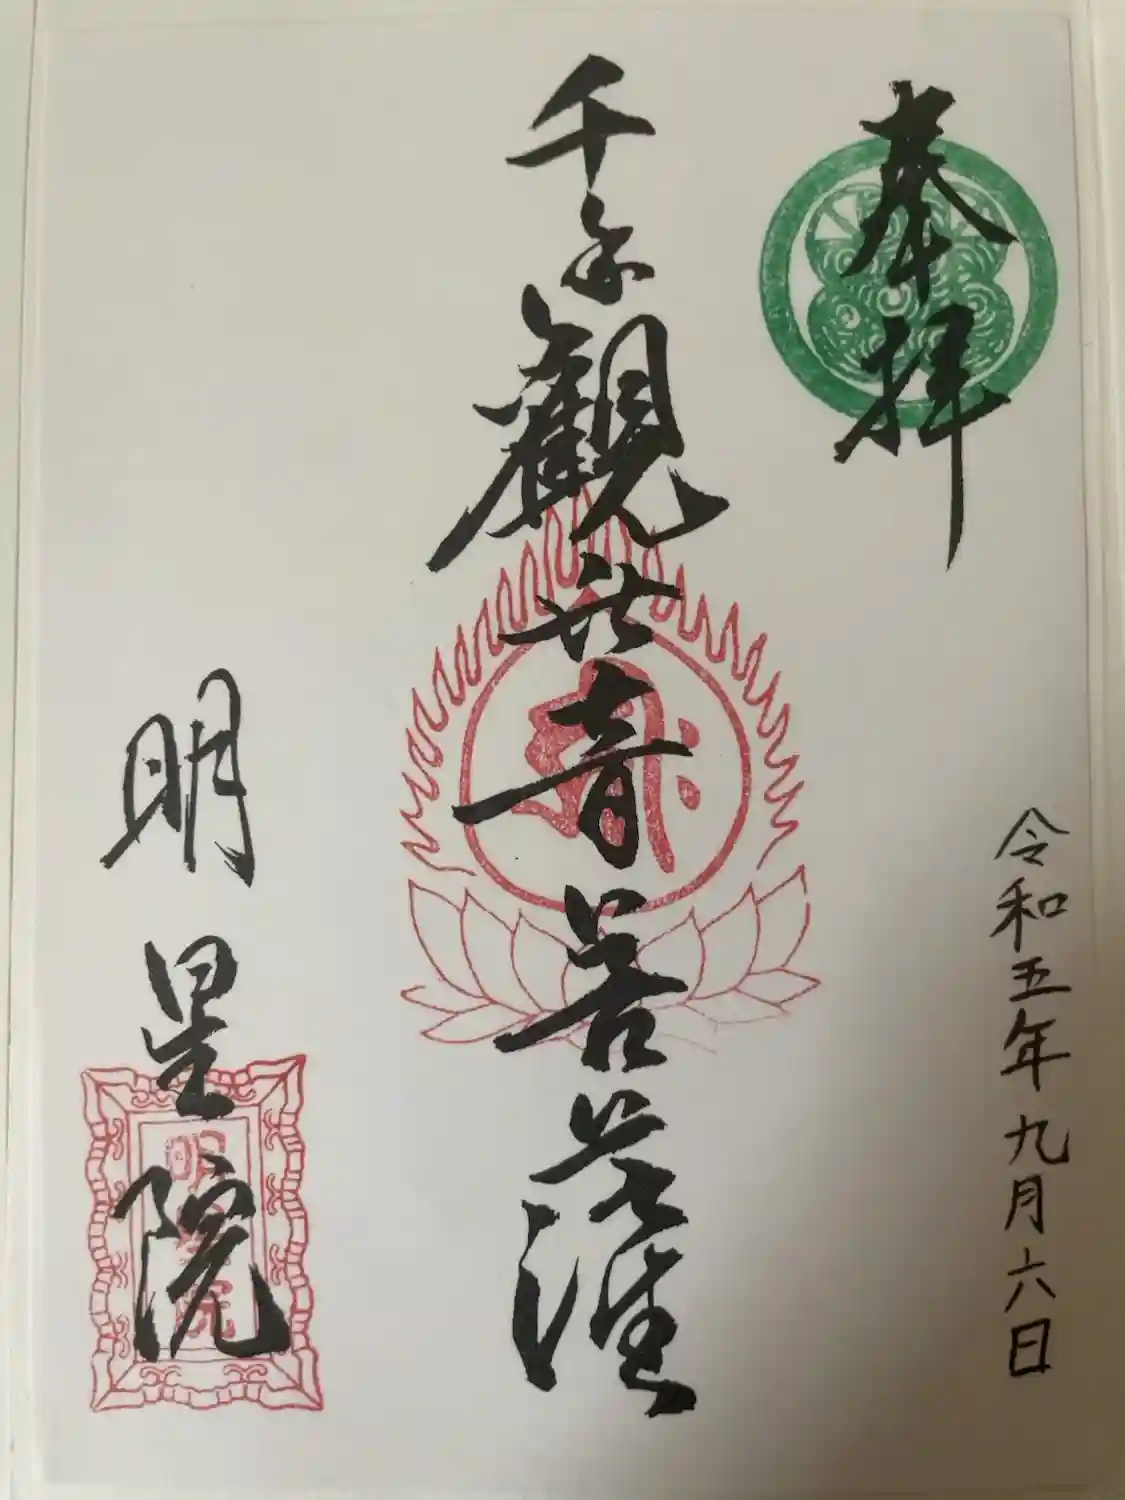 奉拝
令和五年九月六日
千手觀世音菩薩
明星院
明星院